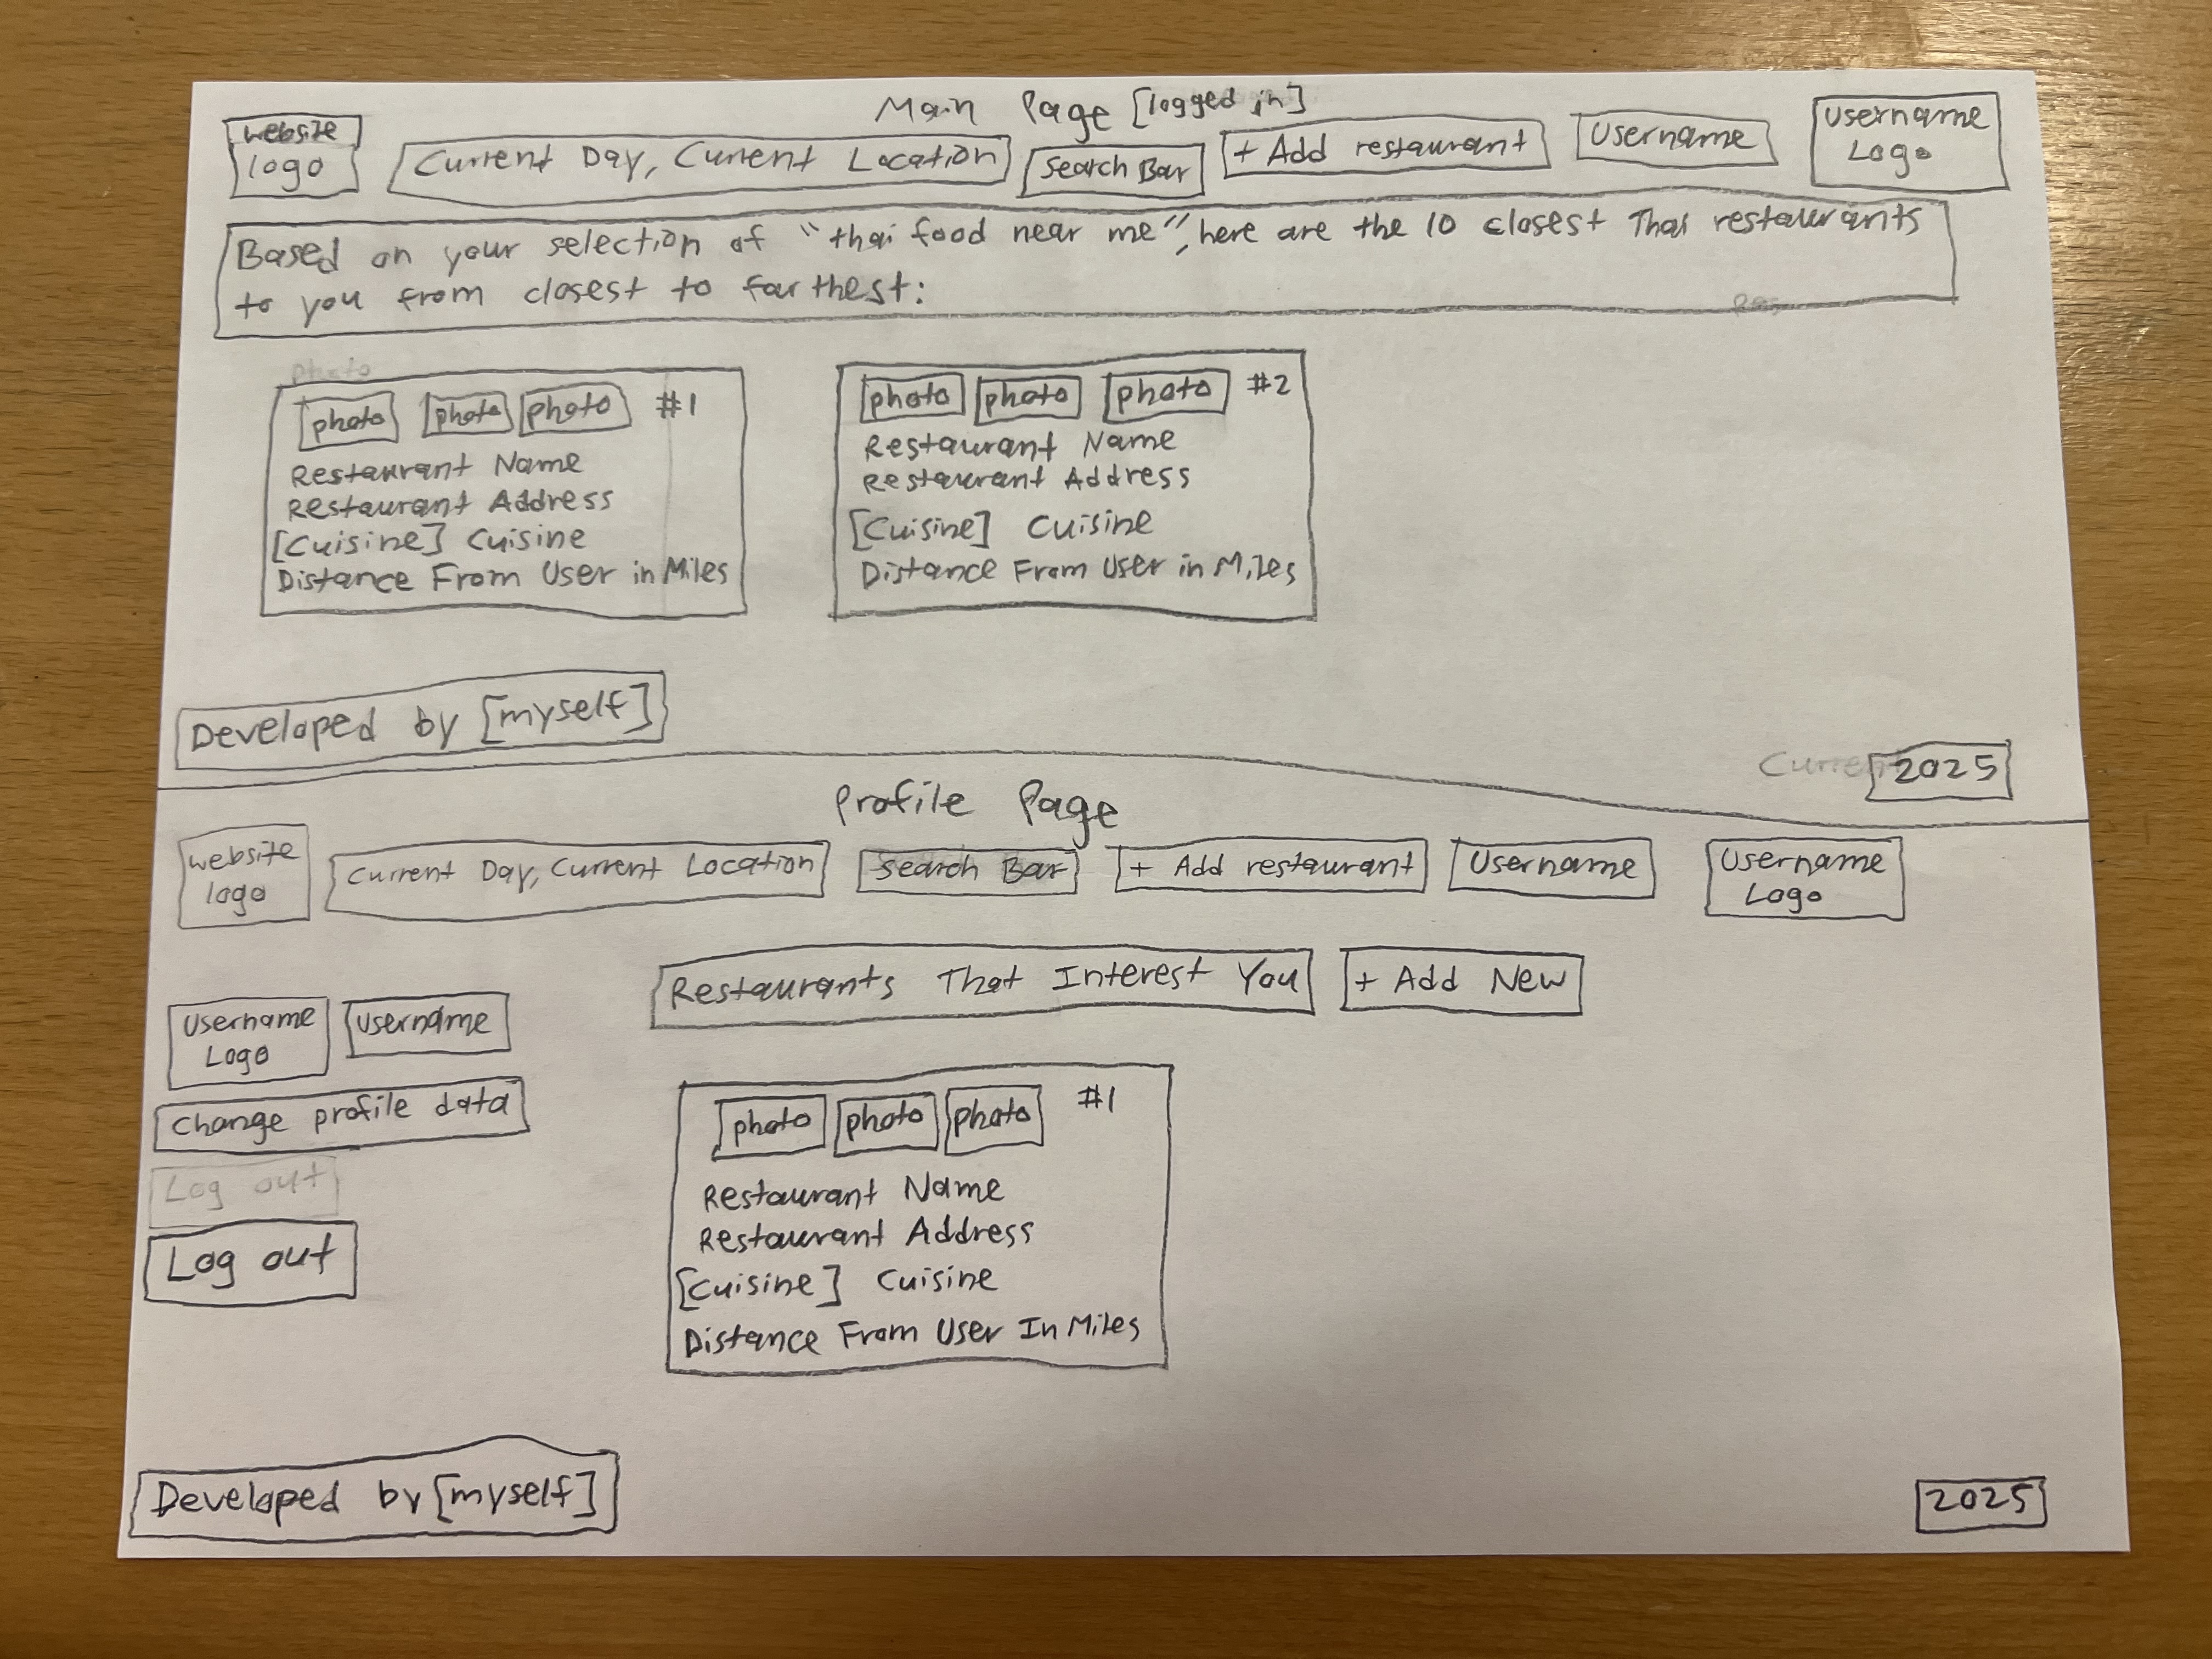 Main Page [logged in]
website
logo
Current Day, Current Location
Search Bar
+ Add restaurant
Username
Username
Logo
Based on your selection of "thai food near me", here are the 10 closest Thai restaurants
to you from closest to farthest:
photo
photo photo photo #1
Restaurant Name
Restaurant Address
[Cuisine] Cuisine
Distance From User in Miles
photo photo photo #2
Restaurant Name
Restaurant Address
[Cuisine] Cuisine
Distance From User in Miles
Developed by [myself]
2025
Profile Page
website
logo
Current Day, Current Location
Search Bar
+ Add restaurant
Username
Username
Logo
Restaurants That Interest You
+ Add New
Username
Logo
Username
Change profile data
Log out
Log out
photo photo photo #1
Restaurant Name
Restaurant Address
[Cuisine] Cuisine
Distance From User In Miles
Developed by [myself]
2025